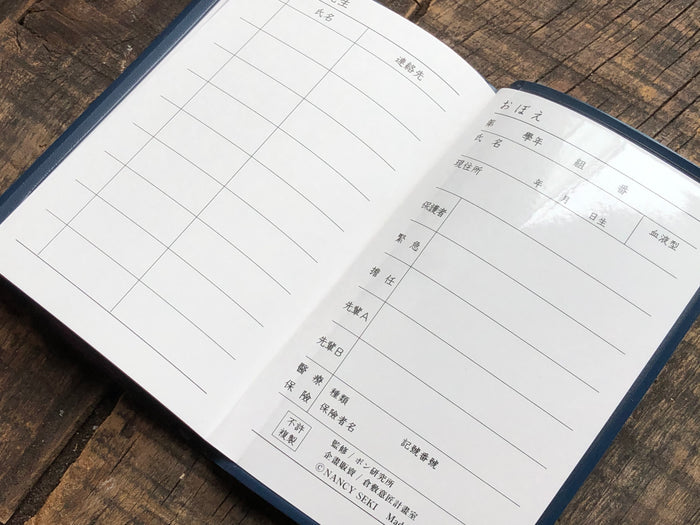 先生
氏名
連絡先
おぼえ
第 學年 組 番
氏名
年 月 日生
血液型
現住所
保護者
緊急
擔任
先輩A
先輩B
醫療保險
種類
保險者名
記號番號
不許
複製
監修/ボン研究所
企畫販賣/倉敷意匠計畫室
©NANCY SEKI Mad